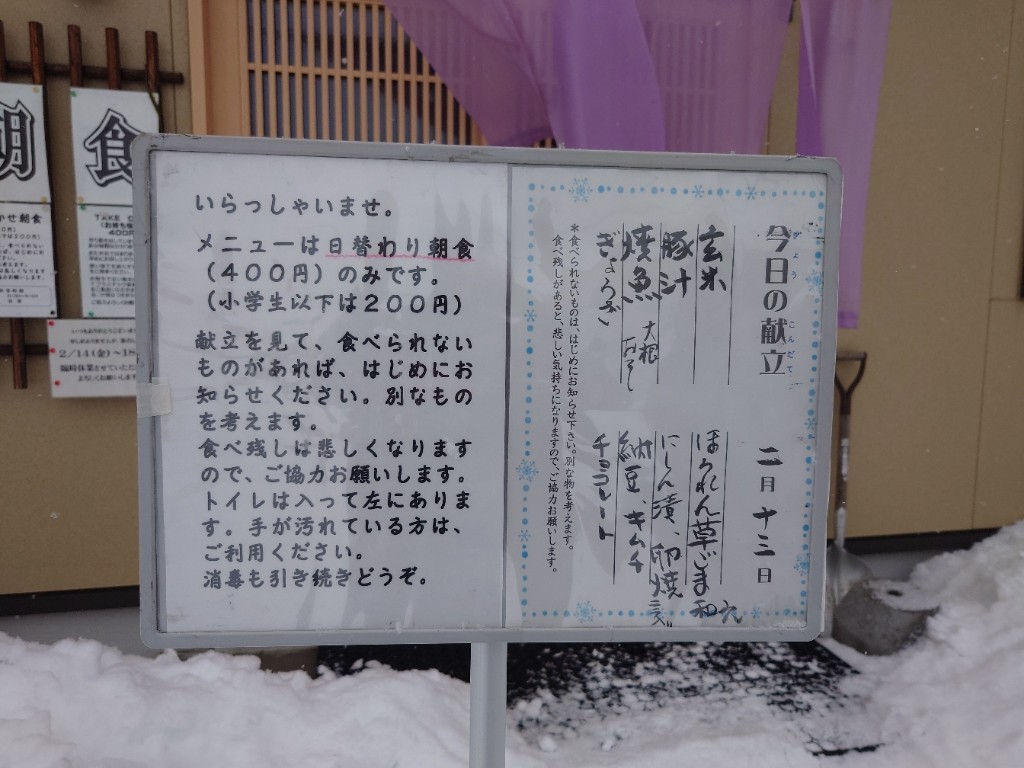 朝
食
いらっしゃいませ。
メニューは日替わり朝食
(400円)のみです。
(小学生以下は200円)
献立を見て、食べられない
ものがあれば、はじめにお
知らせください。別なもの
を考えます。
食べ残しは悲しくなります
ので、ご協力お願いします。
トイレは入って左にありま
す。手が汚れている方は、
ご利用ください。
消毒も引き続きどうぞ。
今日の献立
きょう
こんだて
二月十三日
玄米
豚汁
焼魚 大根おろし
ぎょうざ
ほうれん草ごま和え
にしん漬、卵焼
納豆、キムチ
チョコレート
*食べられないものは、はじめにお知らせ下さい。別な物を考えます。
食べ残しがあると、悲しい気持ちになりますので、ご協力お願いします。
2/14(金)~18
臨時休業させていただ
よろしくお願いします